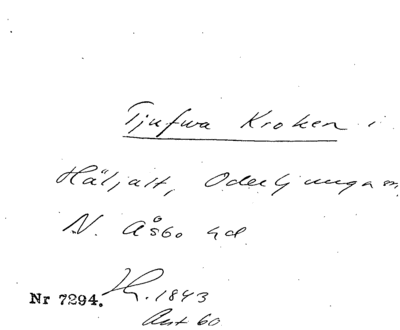 Tjufwa Kroken i
Häljalt, Oderljunga sn,
N. Åsbo hd.
Nr 7294. 1843
Ant 60